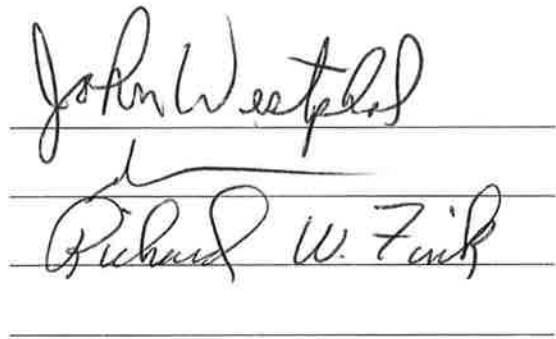 John Westphal
Richard W. Fink